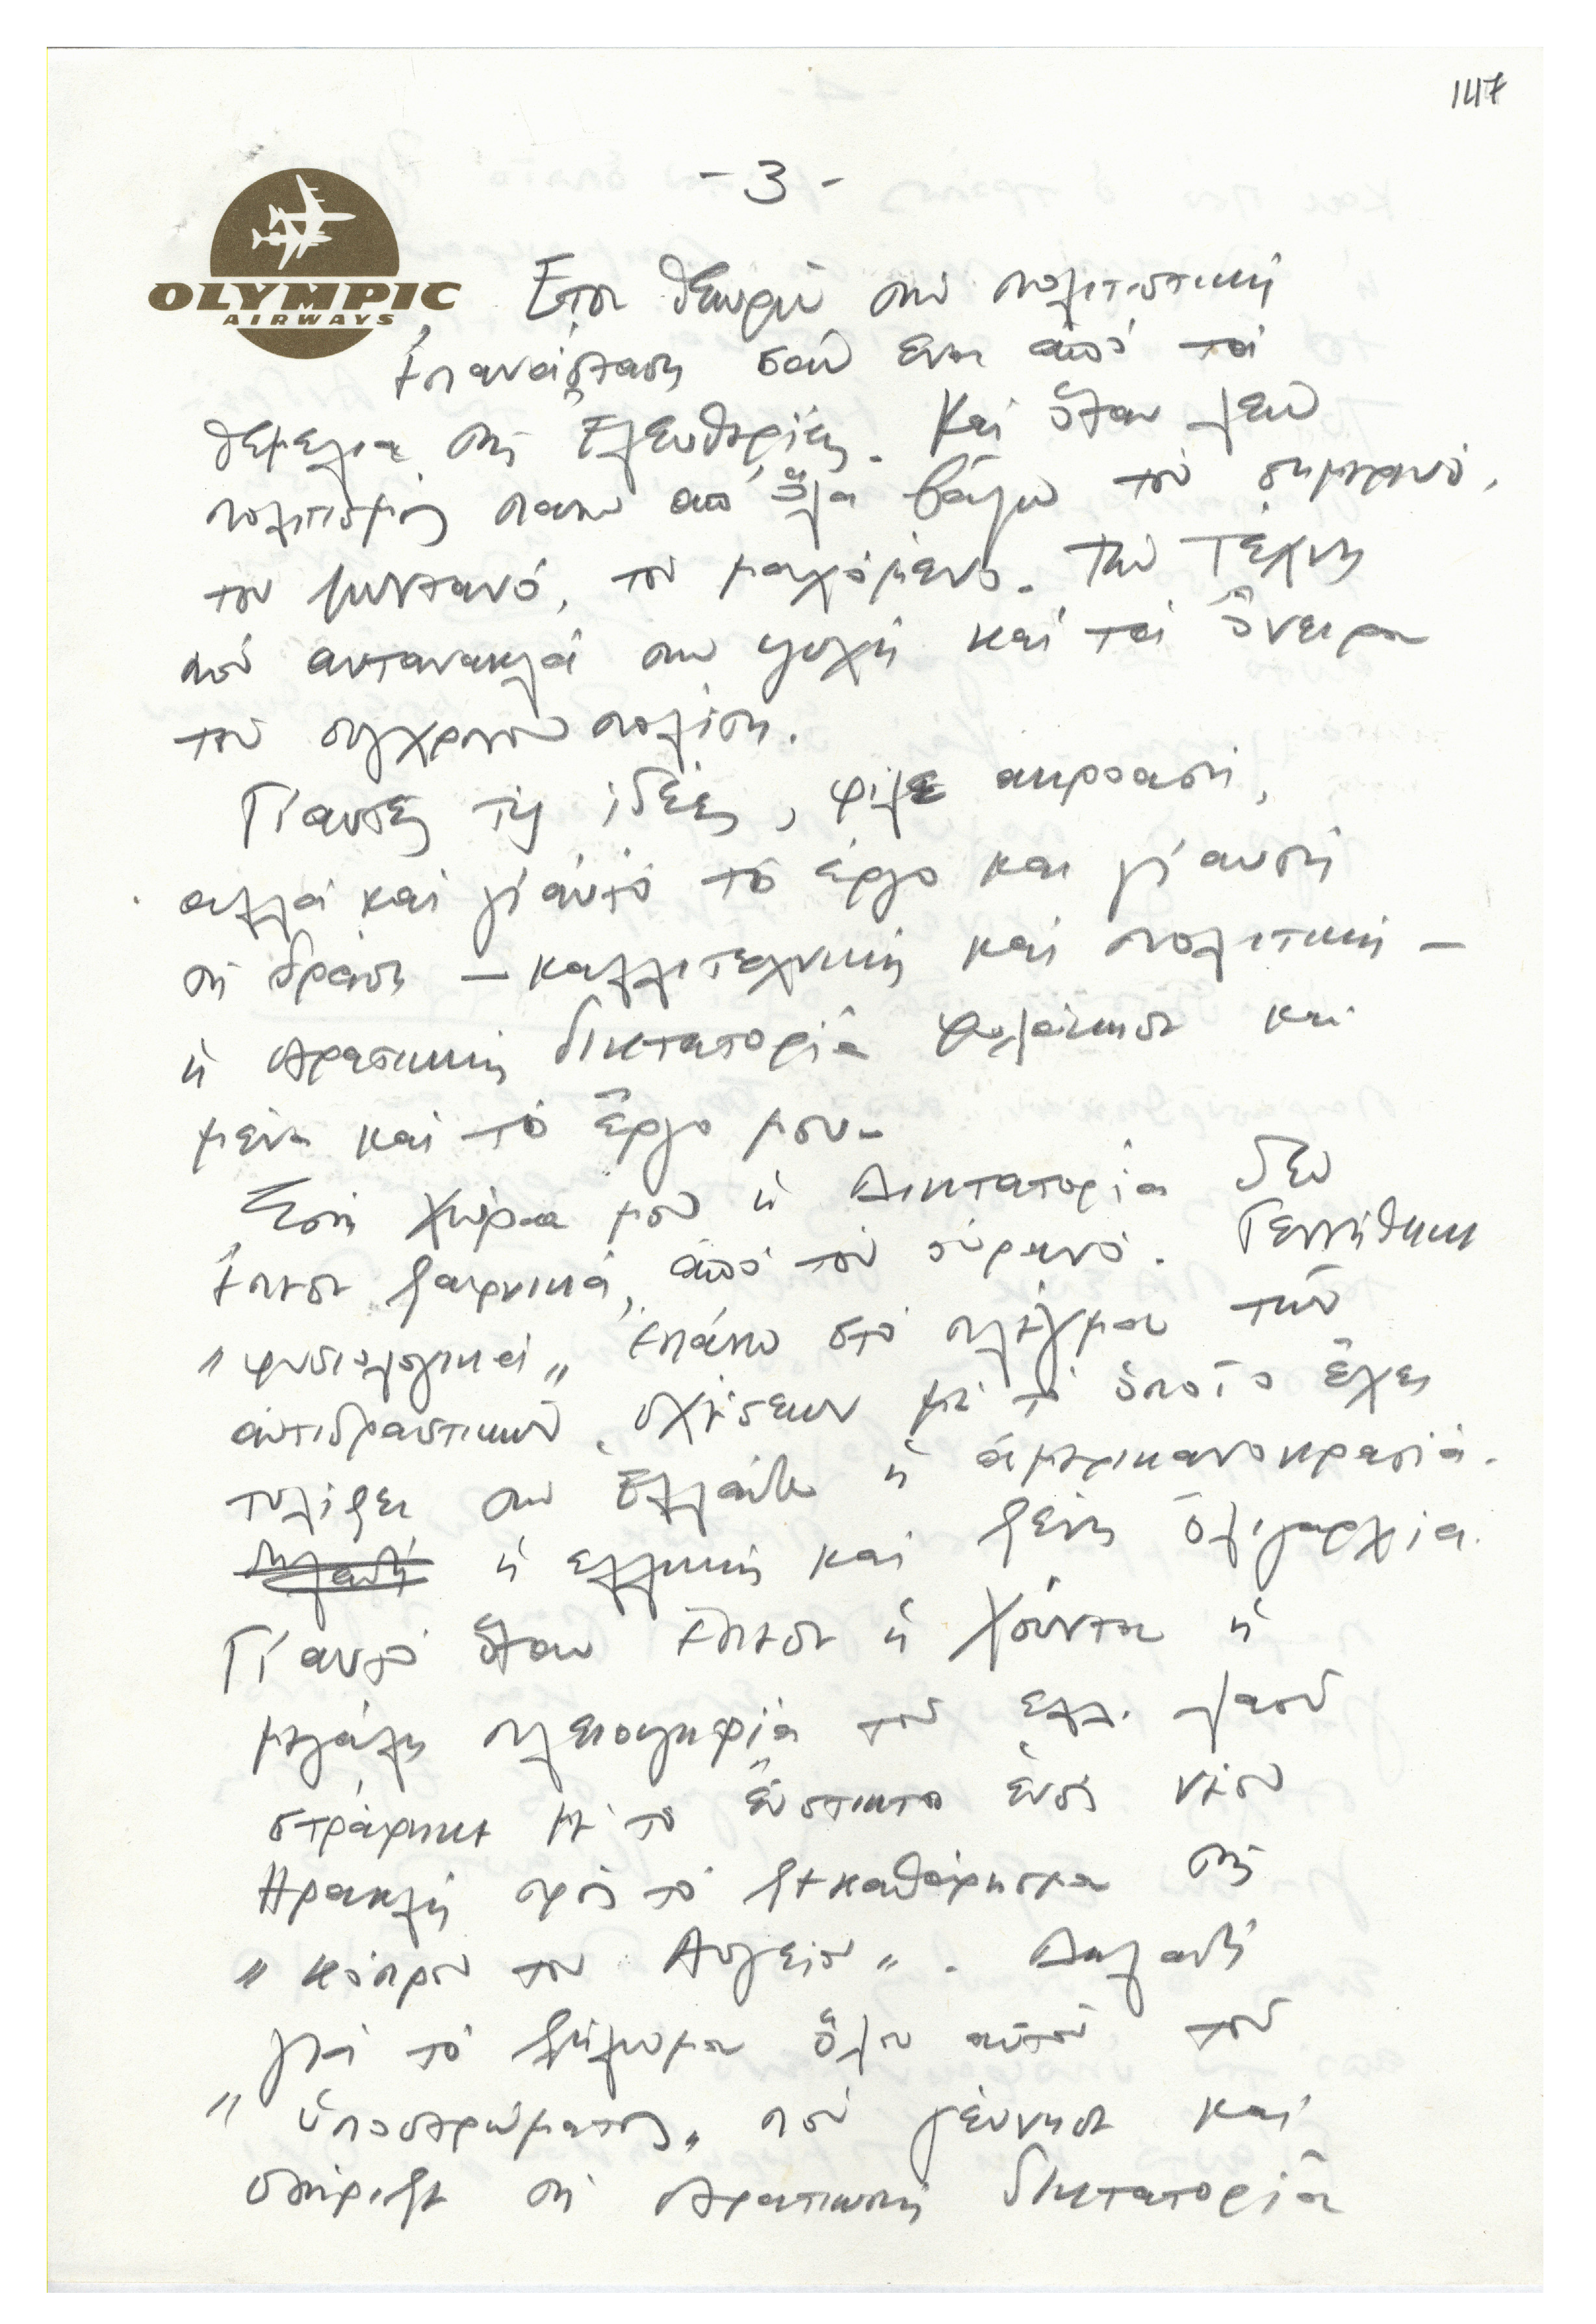 147
- 3 -
OLYMPIC
AIRWAYS
Ετσι θεωρώ την πολιτιστική
Επανάσταση σαν ενα από τα
θεμελια της Ελευθερίας. Καί όταν λεω
πολιτισμός πανω απ' όλα βάζω τον σημερινό,
τον ζωντανό, τον μαχόμενο. Την Τέχνη
πού αντανακλά την ψυχή καί τά όνειρα
του συγχρονου πολίτη.
Γι' αυτές τίς ιδέες, φίλε ακροατή,
αλλά καί γι' αυτό τό έργο και γι' αυτή
τή δράση – καλλιτεχνική καί πολιτική –
ή στρατιωτική δικτατορία φυλάκισε και
μένα καί τό έργο μου.
Στή χώρα μου ή Δικτατορία δεν
έπεσε ξαφνικά, από τόν ουρανό. Γεννήθηκε
"φυσιολογικά" επάνω στό πλέγμα των
αντιδραστικών σχέσεων μέ τό όποίο έχει
τυλίξει την Ελλάδα ή αμερικανοκρατία.
δηλαδή ή ελληνική καί ξένη όλιγαρχία.
Γι' αυτό όταν έπεσε ή Χούντα ή
μεγάλη πλειοψηφία του ελλ. λαού
στράφηκε με το ένστικτο ενός νέου
Ηρακλή πρός τό ξεκαθάρισμα της
"κόπρου του Αυγείου". Δηλαδή
γιά τό ξήλωμα όλου αυτού του
"ύποστρώματος" πού γέννησε καί
στήριξε τή στρατιωτική δικτατορία